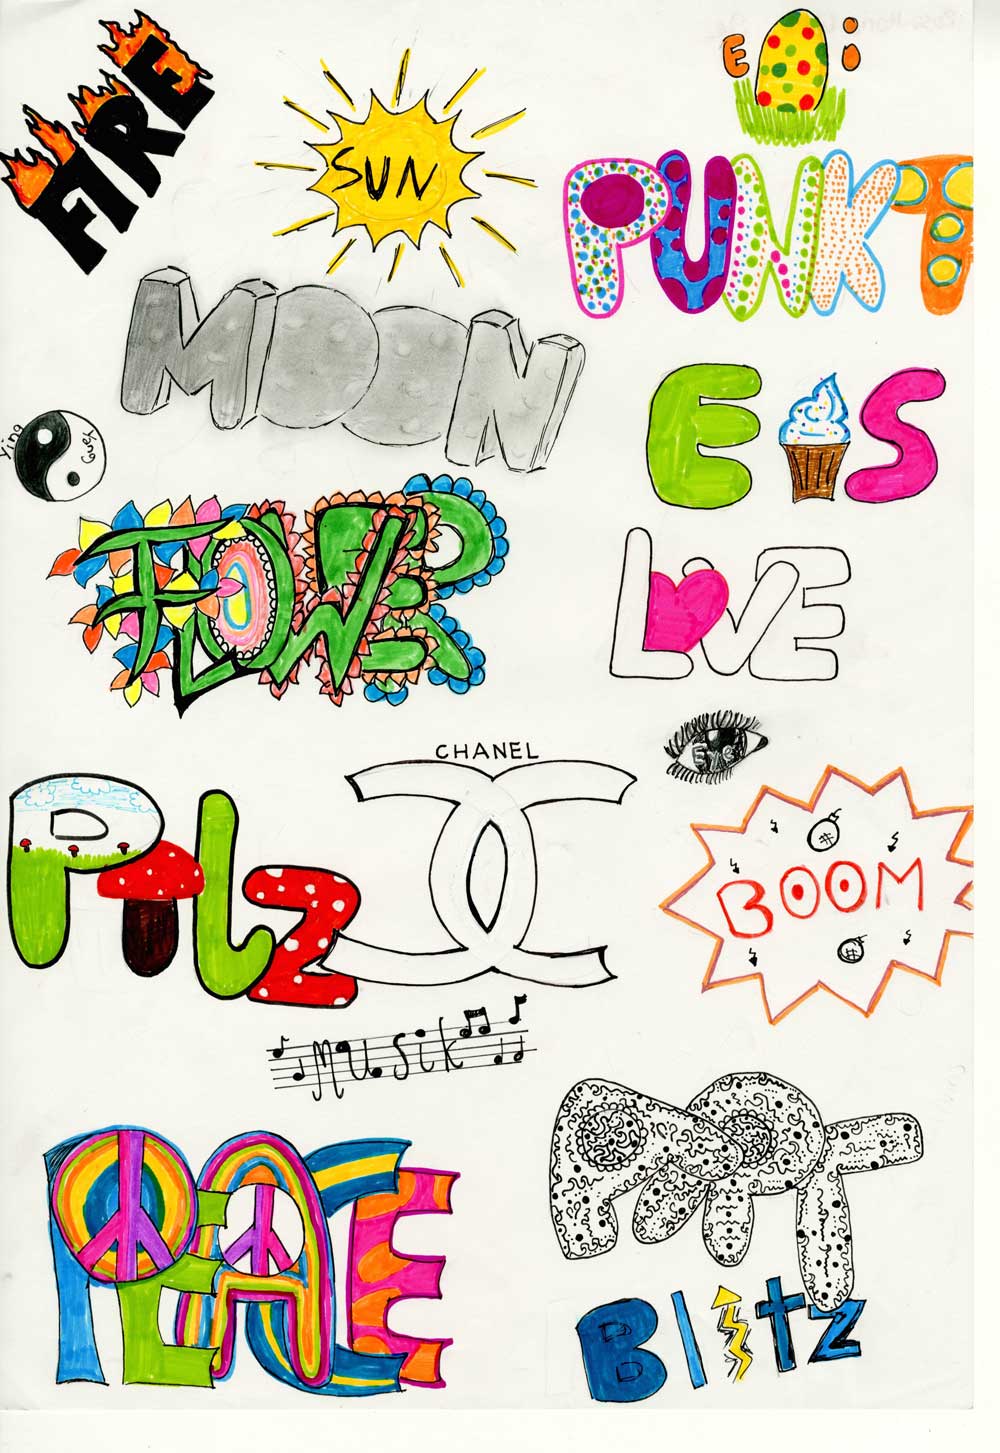 FIRE
SUN
Ei
PUNKT
MOON
EIS
Ying
FLOWER
LOVE
CHANEL
PILZ
BOOM
Musik
PEACE
Blitz